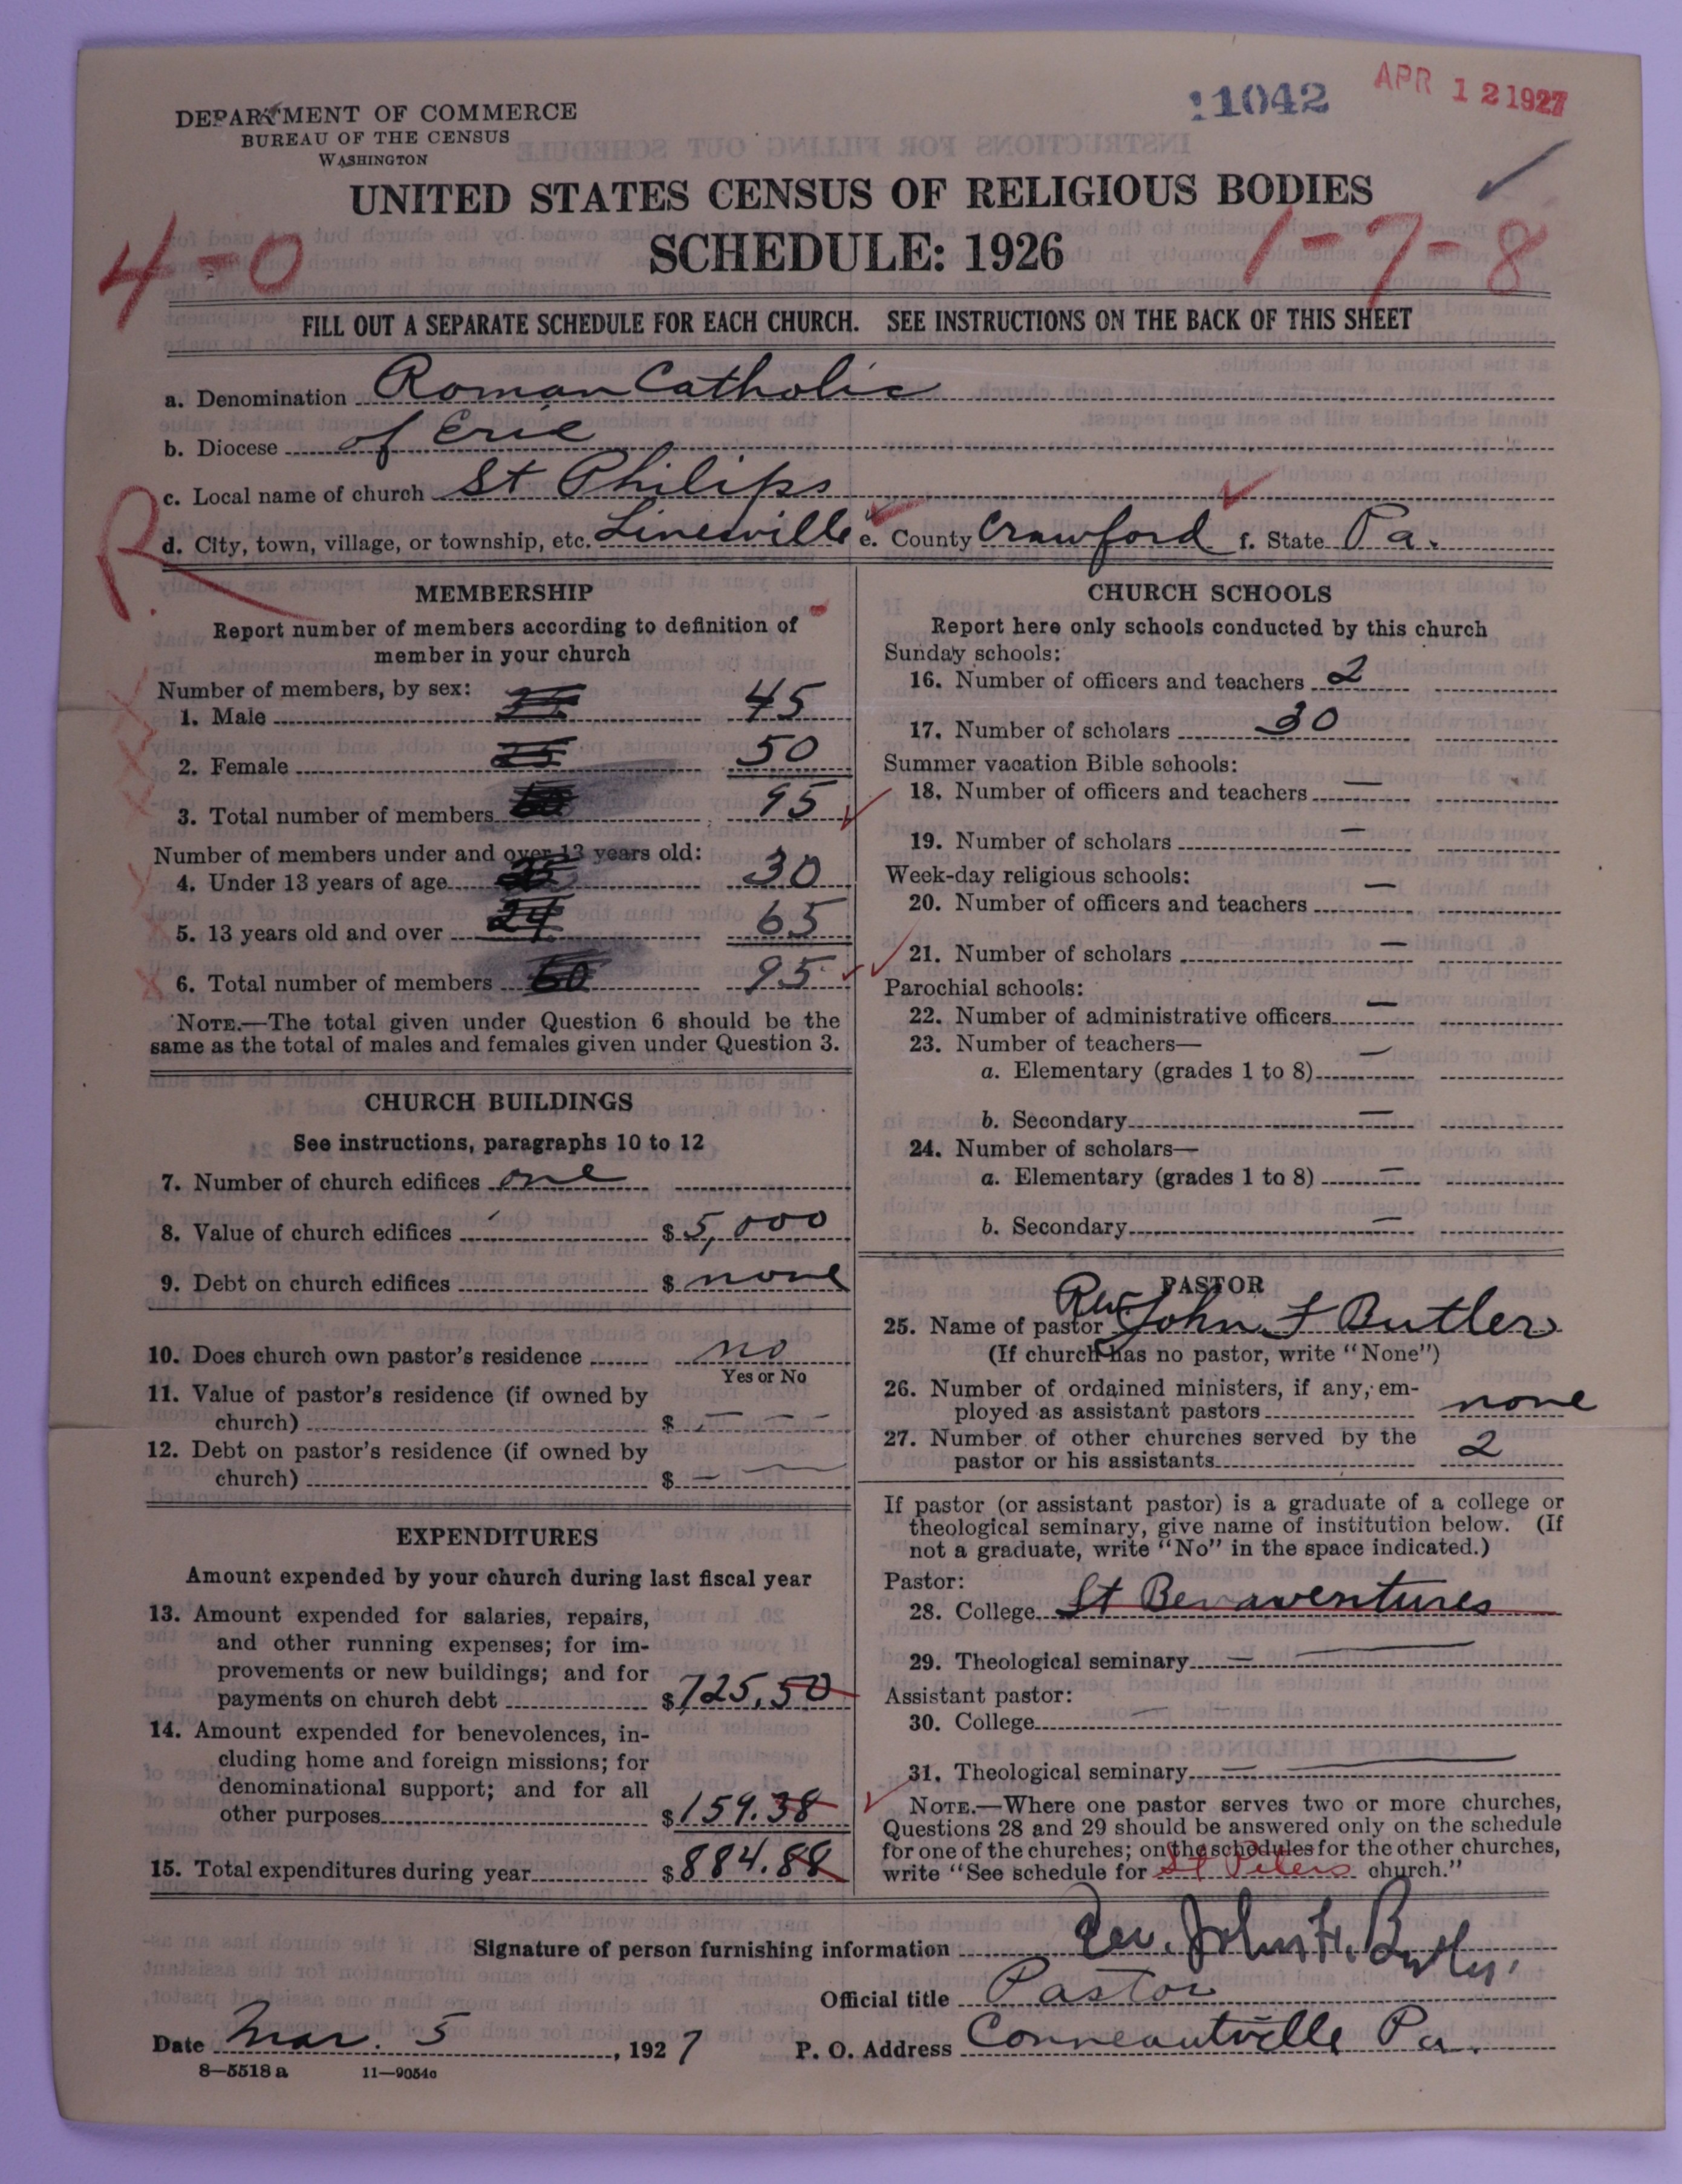 DEPARTMENT OF COMMERCE
BUREAU OF THE CENSUS
WASHINGTON
11042
APR 12 1927
UNITED STATES CENSUS OF RELIGIOUS BODIES
SCHEDULE: 1926
4-0
1-7-8
FILL OUT A SEPARATE SCHEDULE FOR EACH CHURCH. SEE INSTRUCTIONS ON THE BACK OF THIS SHEET
a. Denomination Roman Catholic
b. Diocese of Erie
c. Local name of church St Philips
R
d. City, town, village, or township, etc. Linesville e. County Crawford f. State Pa.
MEMBERSHIP
Report number of members according to definition of
member in your church
Number of members, by sex:
1. Male 45
2. Female 50
3. Total number of members 95
Number of members under and over 13 years old:
4. Under 13 years of age 30
5. 13 years old and over 24 65
6. Total number of members 60 95
NOTE.—The total given under Question 6 should be the
same as the total of males and females given under Question 3.
CHURCH BUILDINGS
See instructions, paragraphs 10 to 12
7. Number of church edifices one
8. Value of church edifices $ 5,000
9. Debt on church edifices $ none
10. Does church own pastor's residence no
Yes or No
11. Value of pastor's residence (if owned by
church) $ — — —
12. Debt on pastor's residence (if owned by
church) $ — —
EXPENDITURES
Amount expended by your church during last fiscal year
13. Amount expended for salaries, repairs,
and other running expenses; for im-
provements or new buildings; and for
payments on church debt $ 725.50
14. Amount expended for benevolences, in-
cluding home and foreign missions; for
denominational support; and for all
other purposes $ 159.38
15. Total expenditures during year $ 884.88
CHURCH SCHOOLS
Report here only schools conducted by this church
Sunday schools:
16. Number of officers and teachers 2
17. Number of scholars 30
Summer vacation Bible schools:
18. Number of officers and teachers —
19. Number of scholars —
Week-day religious schools:
20. Number of officers and teachers —
21. Number of scholars —
Parochial schools:
22. Number of administrative officers —
23. Number of teachers—
a. Elementary (grades 1 to 8) —
b. Secondary —
24. Number of scholars—
a. Elementary (grades 1 to 8) —
b. Secondary —
PASTOR
25. Name of pastor Rev. John F Butler
(If church has no pastor, write "None")
26. Number of ordained ministers, if any, em-
ployed as assistant pastors none
27. Number of other churches served by the
pastor or his assistants 2
If pastor (or assistant pastor) is a graduate of a college or
theological seminary, give name of institution below. (If
not a graduate, write "No" in the space indicated.)
Pastor:
28. College St Benaventures
29. Theological seminary — —
Assistant pastor:
30. College — —
31. Theological seminary — —
NOTE.—Where one pastor serves two or more churches,
Questions 28 and 29 should be answered only on the schedule
for one of the churches; on the schedules for the other churches,
write "See schedule for St Peters church."
Signature of person furnishing information Rev. John F. Butler.
Official title Pastor
Date Mar. 5, 1927 P. O. Address Conneautville Pa.
8—5518 a 11—9054c